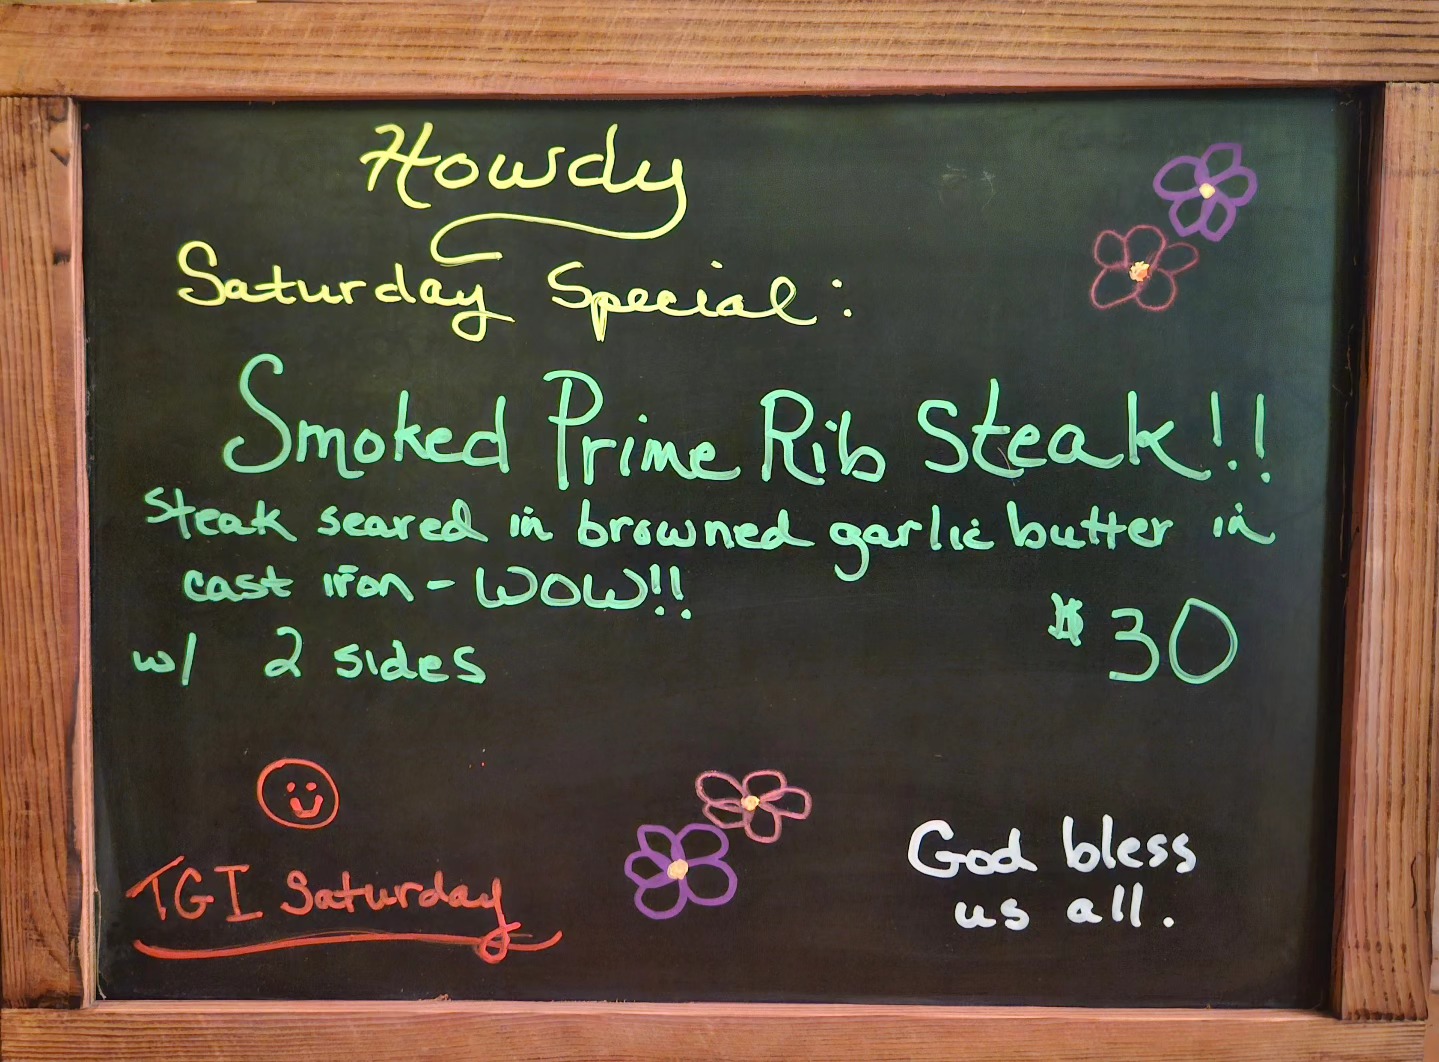 Howdy
Saturday Special:
Smoked Prime Rib Steak!!
Steak seared in browned garlic butter in
cast iron - WOW!!
w/ 2 sides
$30
TGI Saturday
God bless
us all.